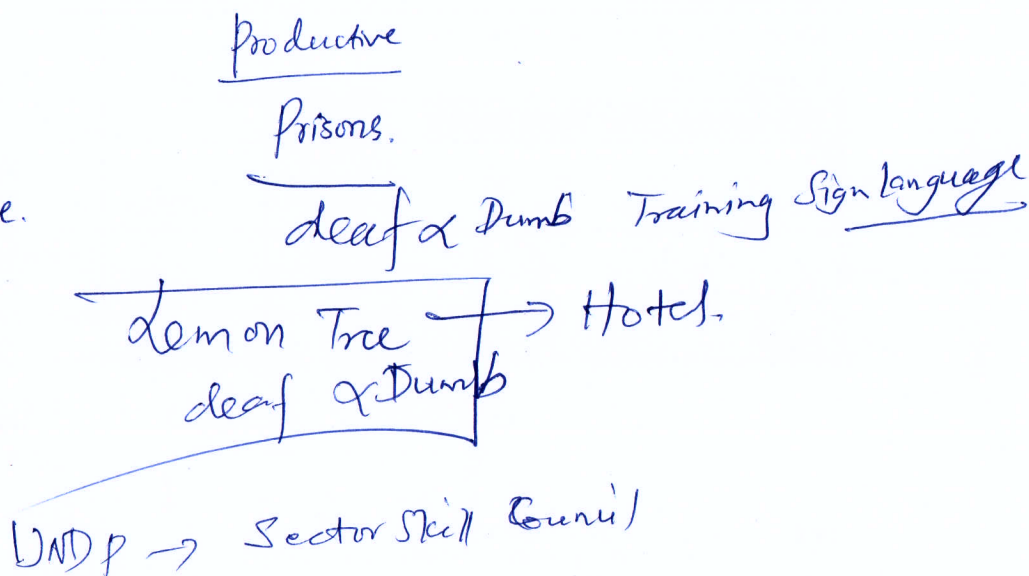 Productive
Prisons.
e.
deaf & Dumb Training Sign language
Lemon Tree → Hotel.
deaf & Dumb
UNDP → Sector Skill Council